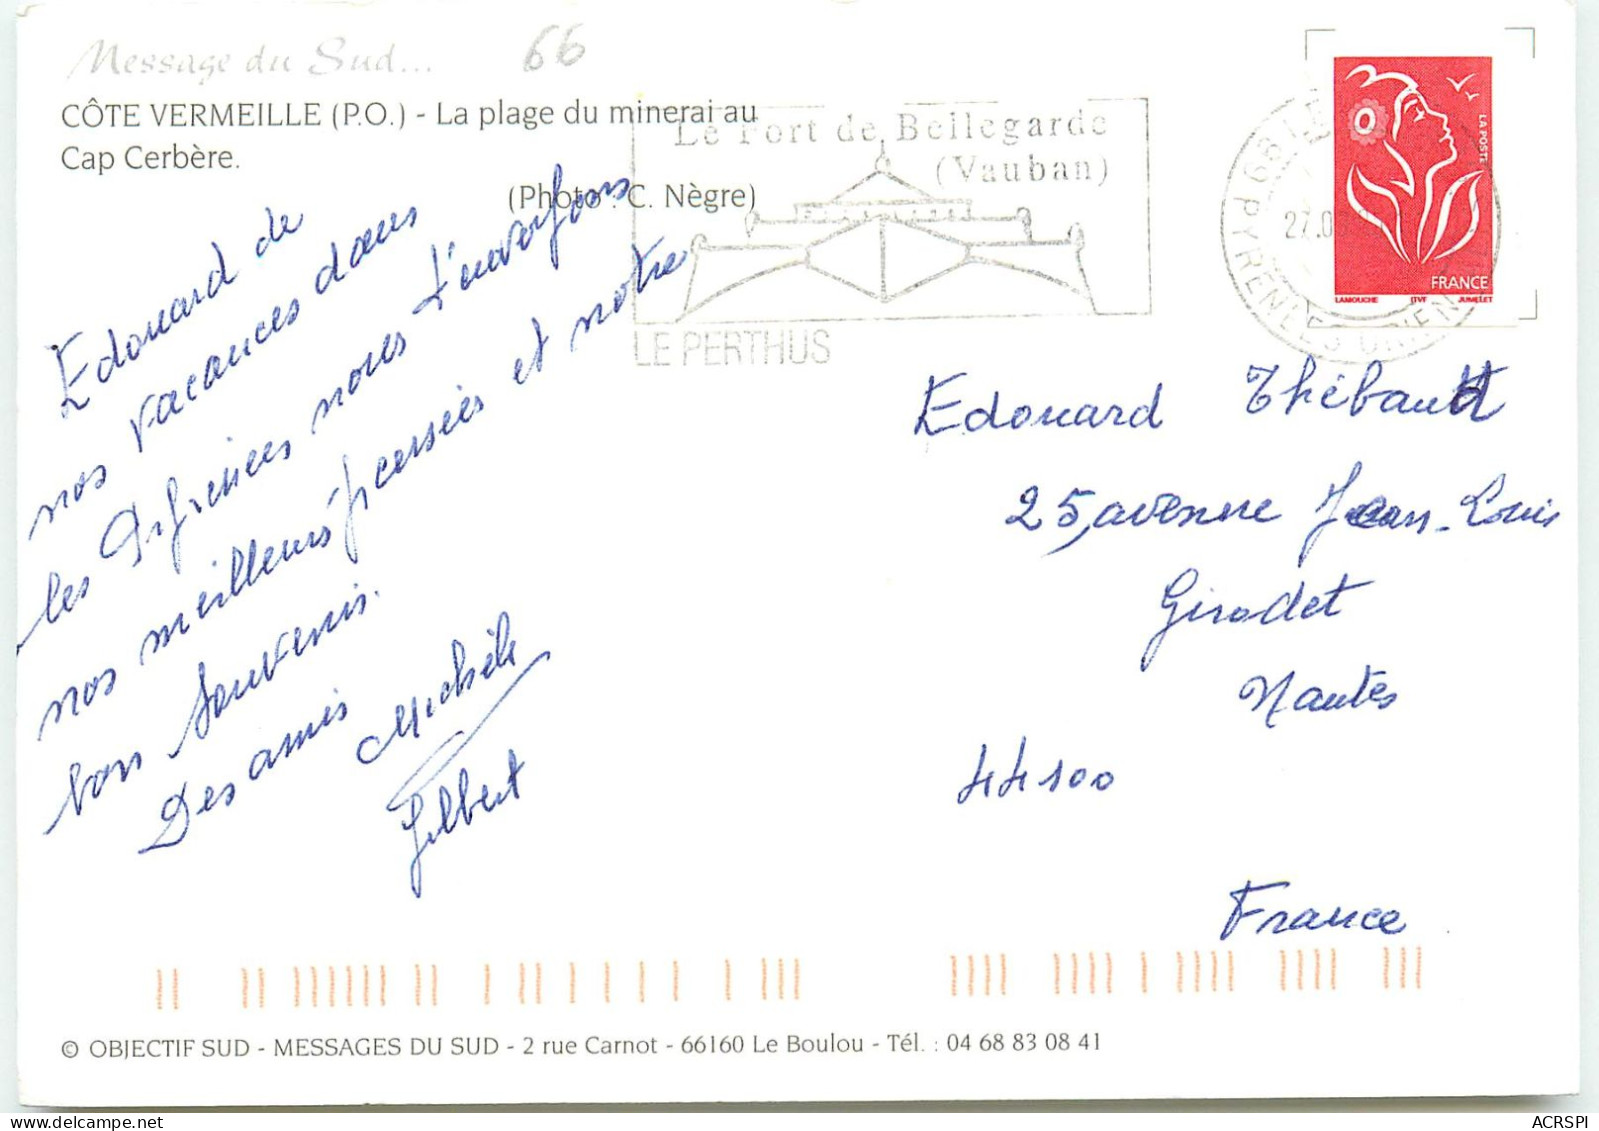 Message du Sud...
66
CÔTE VERMEILLE (P.O.) - La plage du minerai au
Cap Cerbère.
(Photo : C. Nègre)
Le Fort de Bellegarde
(Vauban)
LE PERTHUS
66 LE
PYRENEES ORIEN
27.0
LA POSTE
FRANCE
LAMOUCHE ITVF JUMELET
Edouard de
nos vacances dans
les Pyrenées nous t'envoyons
nos meilleurs pensées et notre
bon Souvenir.
Des amis Michèle
Gilbert
Edouard Thébault
25, avenue Jean-Louis
Girodet
Nantes
44100
France
© OBJECTIF SUD - MESSAGES DU SUD - 2 rue Carnot - 66160 Le Boulou - Tél. : 04 68 83 08 41
delcampe.net
ACRSPI